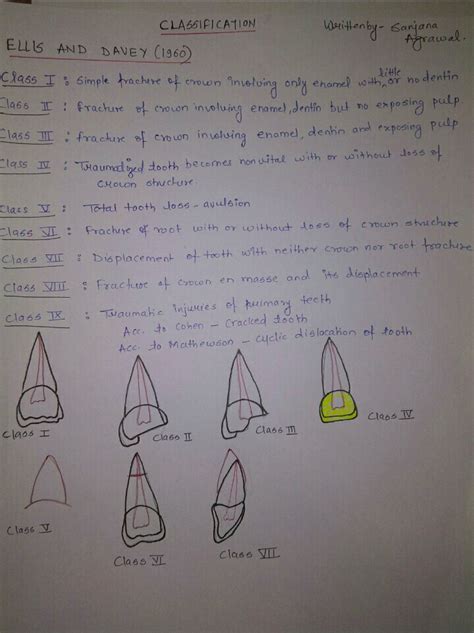 CLASSIFICATION
Writtenby- Sanjana
Agrawal.
ELLIS AND DAVEY (1960)
Class I : Simple fracture of crown involving only enamel with little or no dentin
Class II : fracture of crown involving enamel, dentin but no exposing pulp
Class III : fracture of crown involving enamel, dentin and exposing pulp
Class IV : Traumatized tooth becomes nonvital with or without loss of
crown structure
Class V : Total tooth loss - avulsion
Class VI : Fracture of root with or without loss of crown structure
Class VII : Displacement of tooth with neither crown nor root fracture
Class VIII : Fracture of crown en masse and its displacement
Class IX : Traumatic injuries of primary teeth
Acc. to Cohen - Cracked tooth
Acc to Mathewson - cyclic dislocation of tooth
Class I
Class II
Class III
Class IV
Class V
Class VI
Class VII